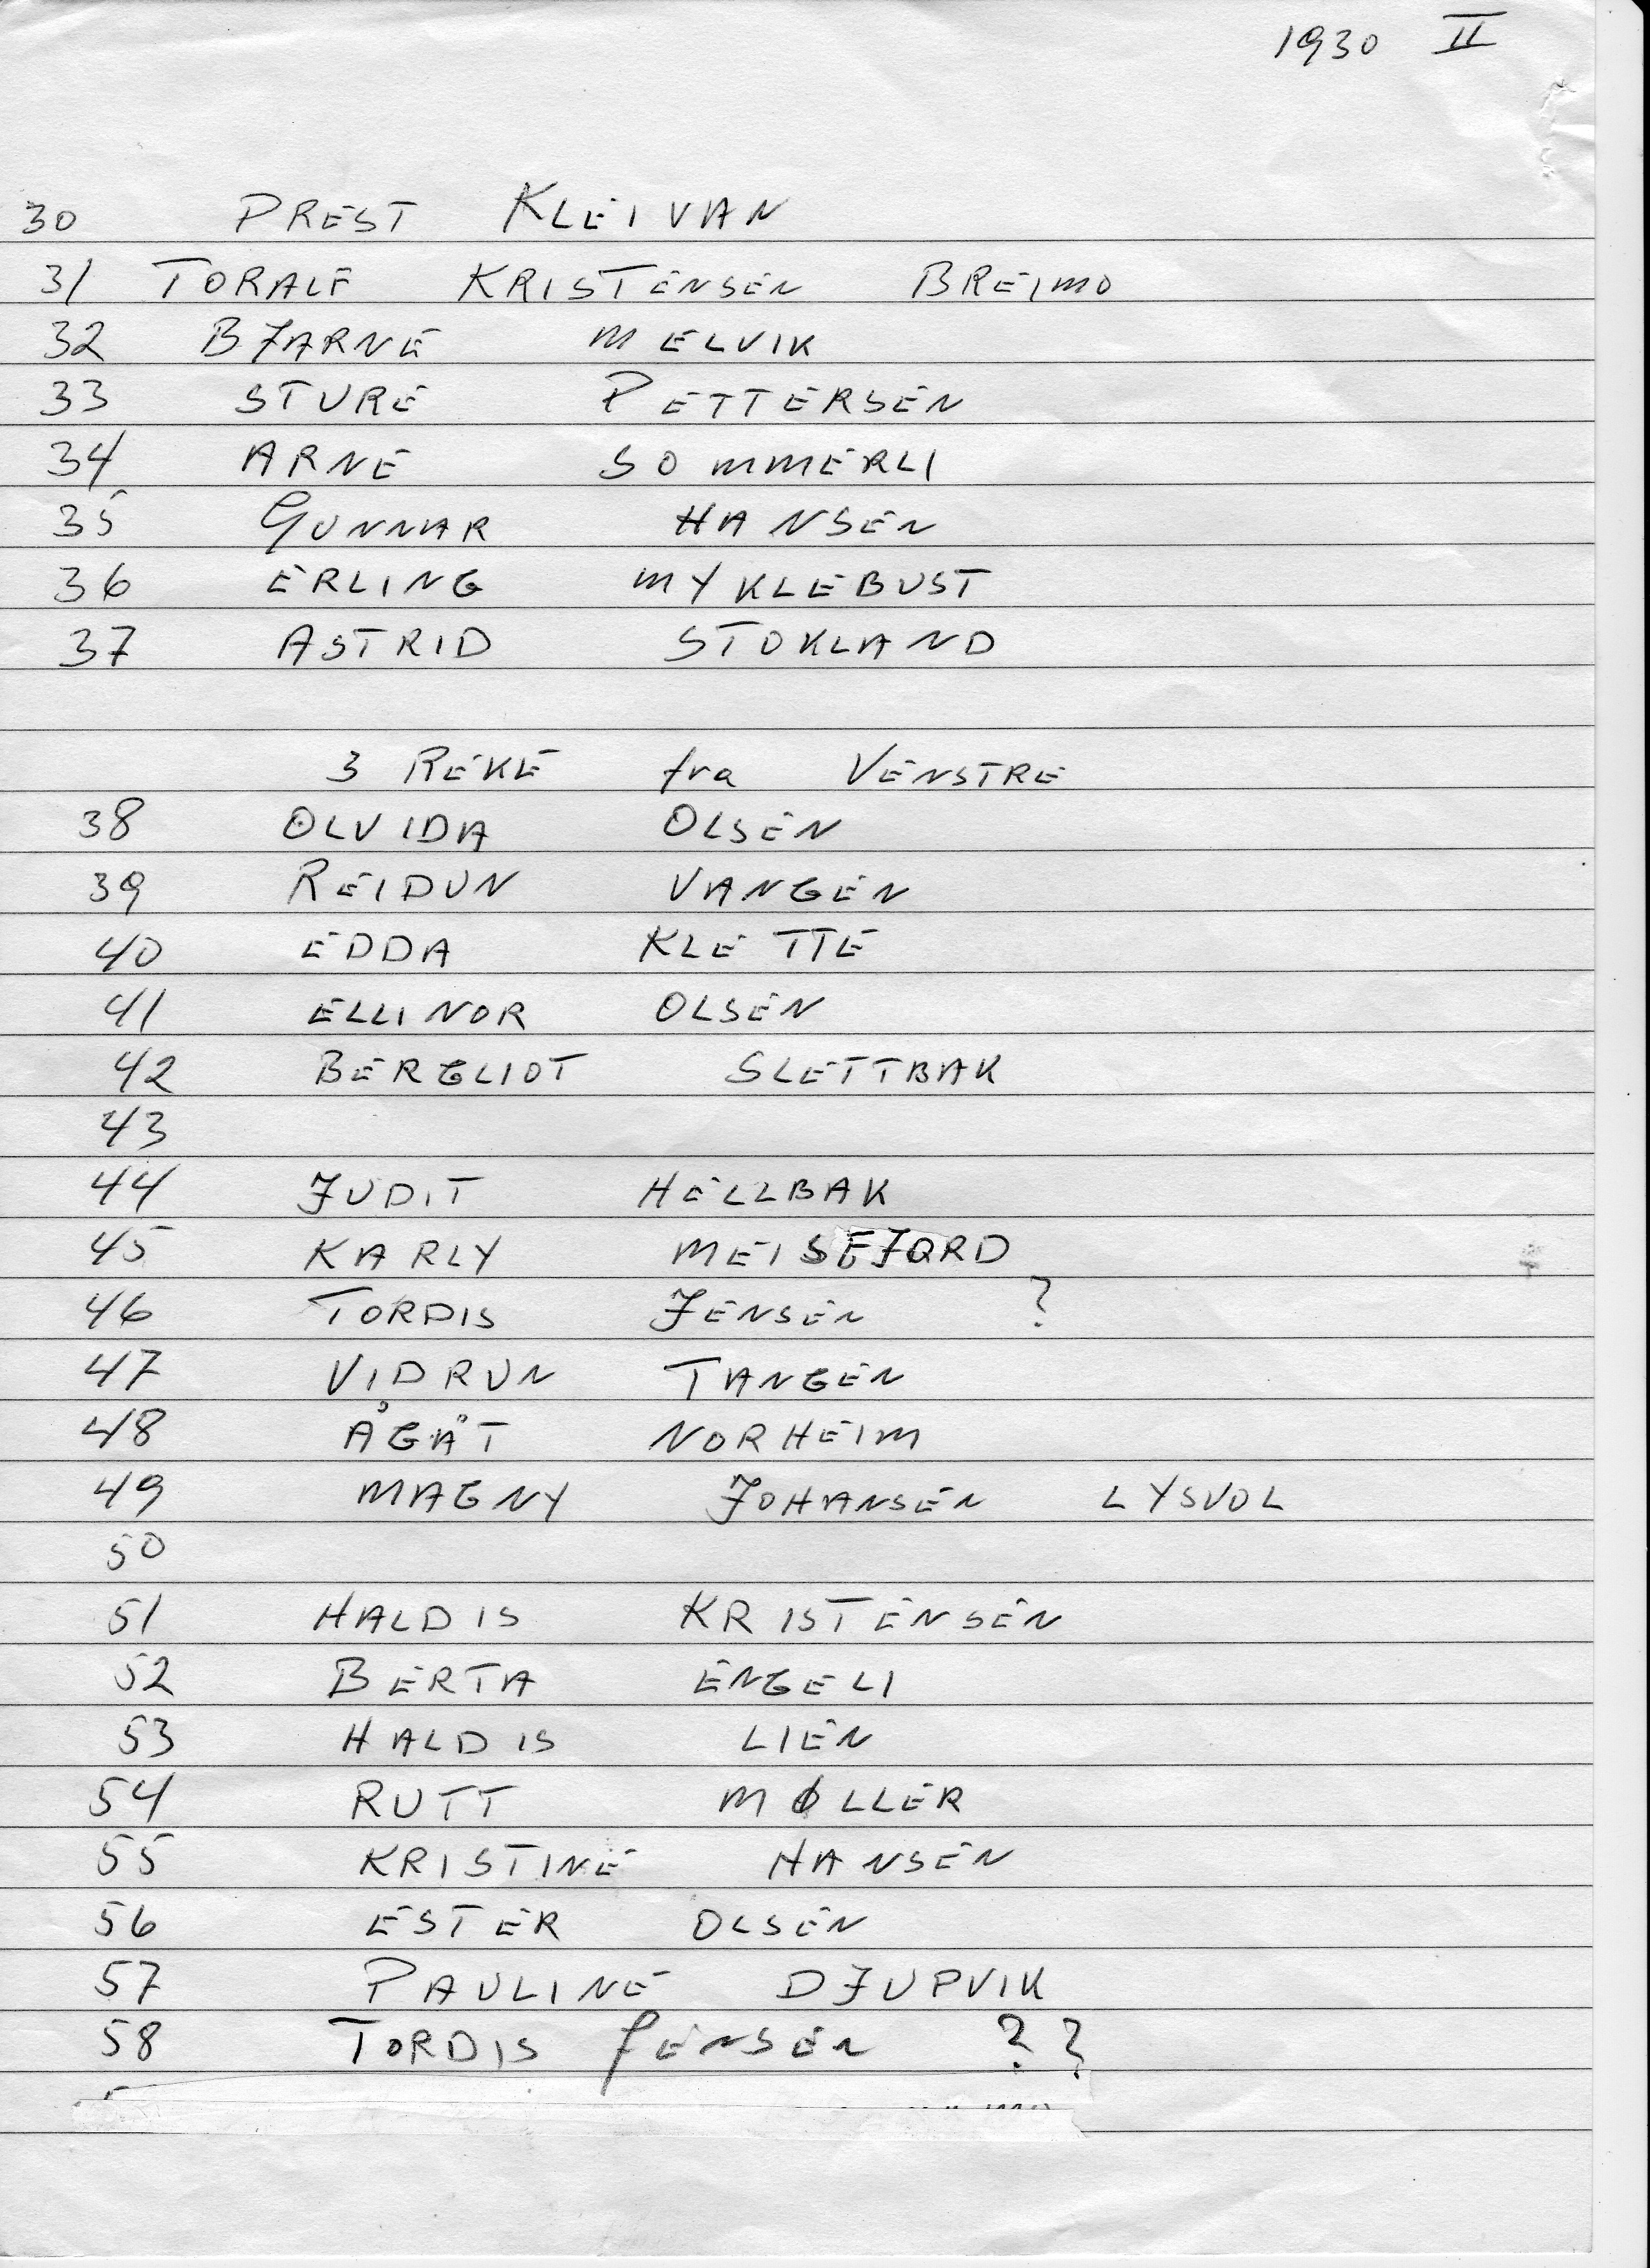 1930 II
30 PREST KLEIVAN
31 TORALF KRISTENSEN BREIMO
32 BJARNE MELVIK
33 STURE PETTERSEN
34 ARNE SOMMERLI
35 GUNNAR HANSEN
36 ERLING MYKLEBUST
37 ASTRID STOKLAND
3 REKE fra VENSTRE
38 OLVIDA OLSEN
39 REIDUN VANGEN
40 EDDA KLETTE
41 ELLINOR OLSEN
42 BERGLIOT SLETTBAK
43
44 JUDIT HELLBAK
45 KARLY MEISFJORD
46 TORDIS JENSEN ?
47 VIDRUN TANGEN
48 ÅGÅT NORHEIM
49 MAGNY JOHANSEN LYSVOL
50
51 HALDIS KRISTENSEN
52 BERTA ENGELI
53 HALDIS LIEN
54 RUTT MØLLER
55 KRISTINE HANSEN
56 ESTER OLSEN
57 PAULINE DJUPVIK
58 TORDIS JENSEN ??